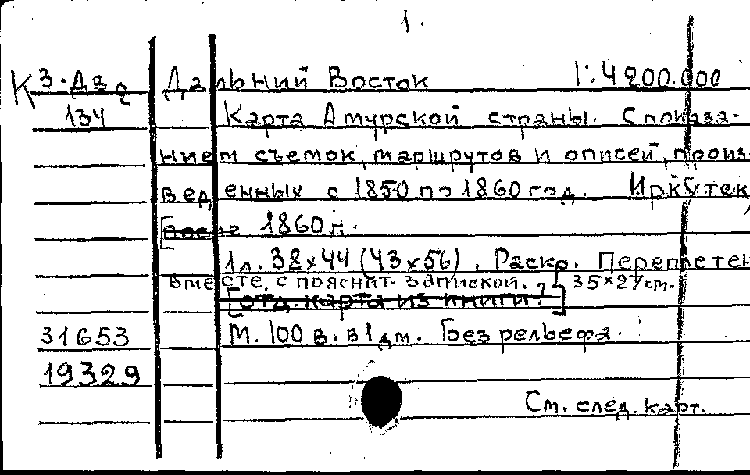 1.
К 3-Дв 2 Дальний Восток 1:4200.000
134 Карта Амурской страны. С показа-
нием съемок, маршрутов и описей, произ-
веденных с 1850 по 1860 год. Иркутск,
после 1860 г.
1 л. 38×44 (43×56). Раскр. Переплетен
вместе с пояснит. запиской. 35×27 см.
[отд. карта из книги?]
31653 М. 100 в. в 1 дм. Без рельефа.
19329
См. след. карт.